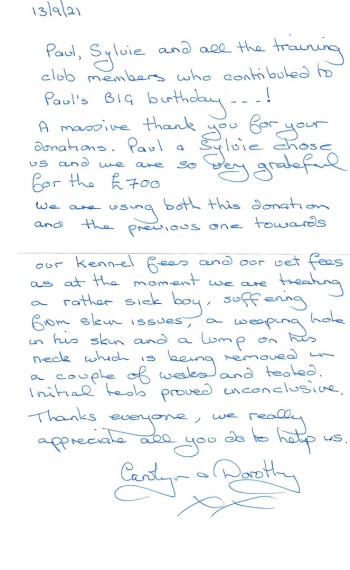 13/9/21
Paul, Sylvie and all the training
club members who contributed to
Paul's BIG birthday ---!
A massive thank you for your
donations. Paul & Sylvie chose
us and we are so very grateful
for the £700
We are using both this donation
and the previous one towards
our Kennel fees and our vet fees
as at the moment we are treating
a rather sick boy, suffering
from skin issues, a weeping hole
in his skin and a lump on his
neck which is being removed in
a couple of weeks and tested.
Initial tests proved inconclusive.
Thanks everyone, we really
appreciate all you do to help us.
Carolyn & Dorothy
xx